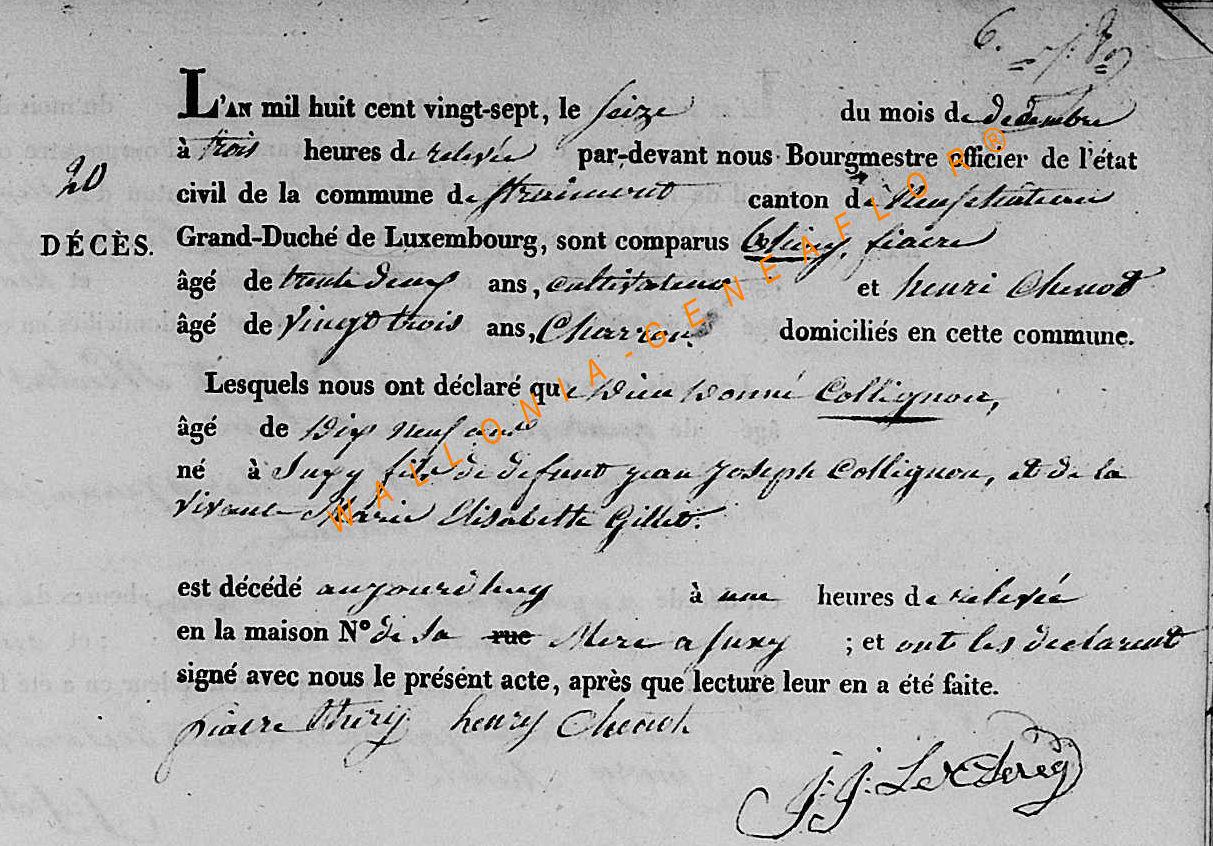 6.
L'AN mil huit cent vingt-sept, le seize du mois de décembre
à trois heures de relevée par-devant nous Bourgmestre officier de l'état
20
civil de la commune de Straimont canton de Neufchateau
DÉCÈS.
Grand-Duché de Luxembourg, sont comparus thiry, fiacre
âgé de trente deux ans, cultivateur et henri Chenot
âgé de Vingt trois ans, Charron domiciliés en cette commune.
Lesquels nous ont déclaré que Dieu Donné Collignon,
âgé de Dix neuf ans
né à Suxy fils de defunt jean Joseph Collignon, et de la
Vivante Marie Elisabette Gillet.
est décédé aujourdhuy à une heures de relevée
en la maison N° de sa rue Mere a Suxy ; et ont les declarent
signé avec nous le présent acte, après que lecture leur en a été faite.
fiacre thiry henry Chenot
J: J: Le Clereq
WALLONIA-GENEAFLOR®